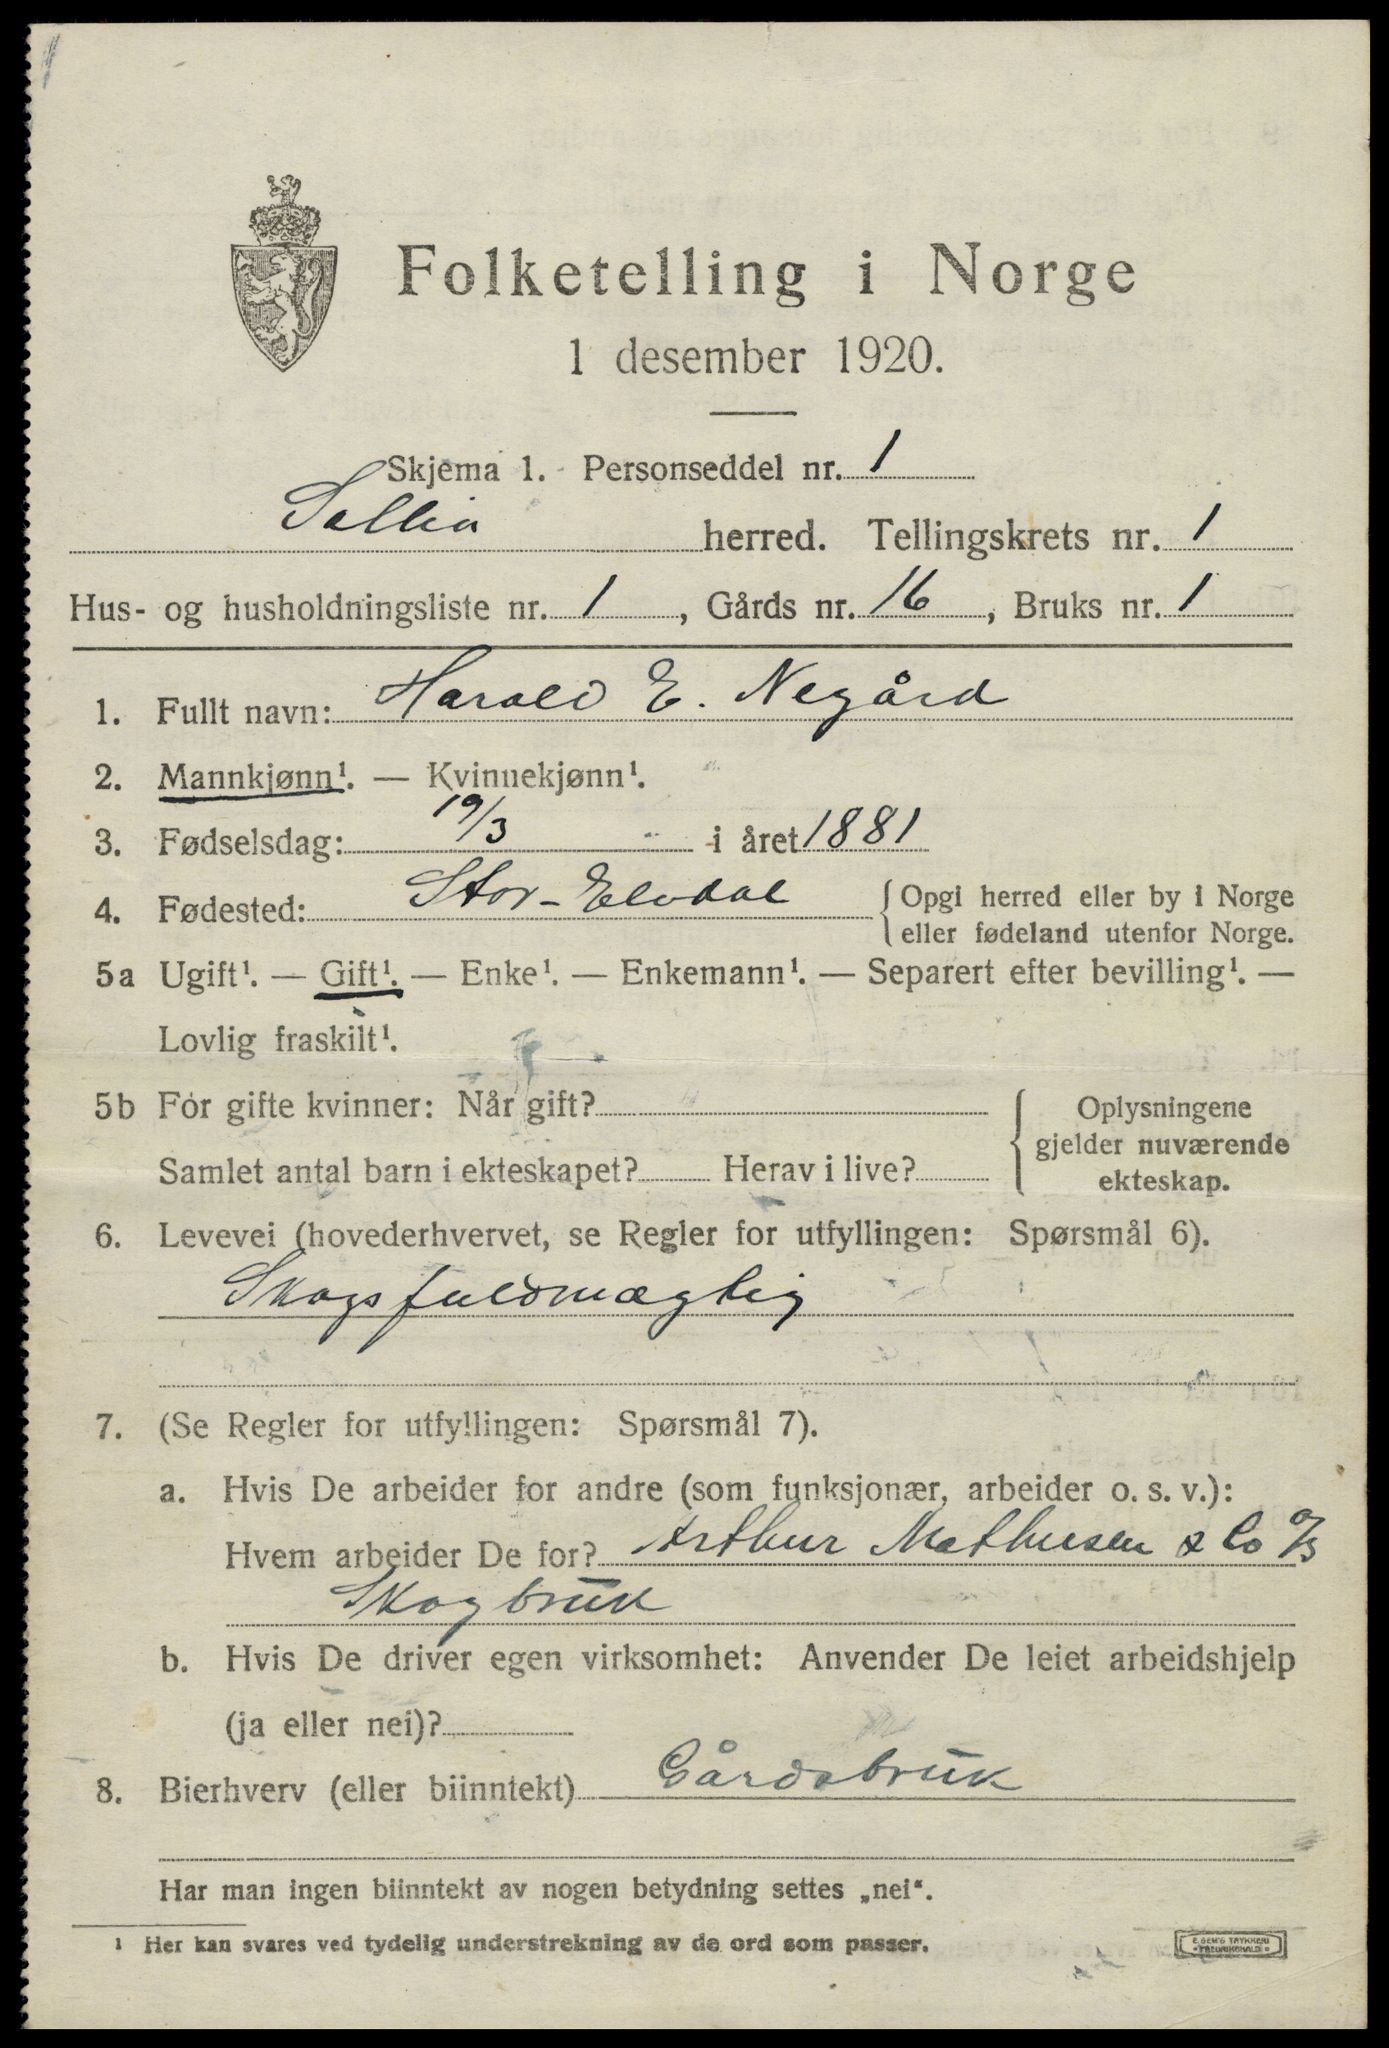 Folketelling i Norge
1 desember 1920.
Skjema 1. Personseddel nr. 1
Sollia herred. Tellingskrets nr. 1
Hus- og husholdningsliste nr. 1, Gårds nr. 16, Bruks nr. 1
1. Fullt navn: Harald E. Negård
2. Mannkjønn¹. — Kvinnekjønn¹.
3. Fødselsdag: 19/3 i året 1881
4. Fødested: Stor-Elvdal {Opgi herred eller by i Norge
eller fødeland utenfor Norge.
5a Ugift¹. — Gift¹. — Enke¹. — Enkemann¹. — Separert efter bevilling¹. —
Lovlig fraskilt¹.
5b For gifte kvinner: Når gift? { Oplysningene
gjelder nuværende
Samlet antal barn i ekteskapet? Herav i live?
ekteskap.
6. Levevei (hovederhvervet, se Regler for utfyllingen: Spørsmål 6).
Skogsfuldmægtig
7. (Se Regler for utfyllingen: Spørsmål 7).
a. Hvis De arbeider for andre (som funksjonær, arbeider o. s. v.):
Hvem arbeider De for? Arthur Mathiesen & Co A/S
Skogbruk
b. Hvis De driver egen virksomhet: Anvender De leiet arbeidshjelp
(ja eller nei)?
8. Bierhverv (eller biinntekt) Gårdsbruk
Har man ingen biinntekt av nogen betydning settes „nei“.
¹ Her kan svares ved tydelig understrekning av de ord som passer.
E. SEM'S TRYKKERI
FREDRIKSHALD